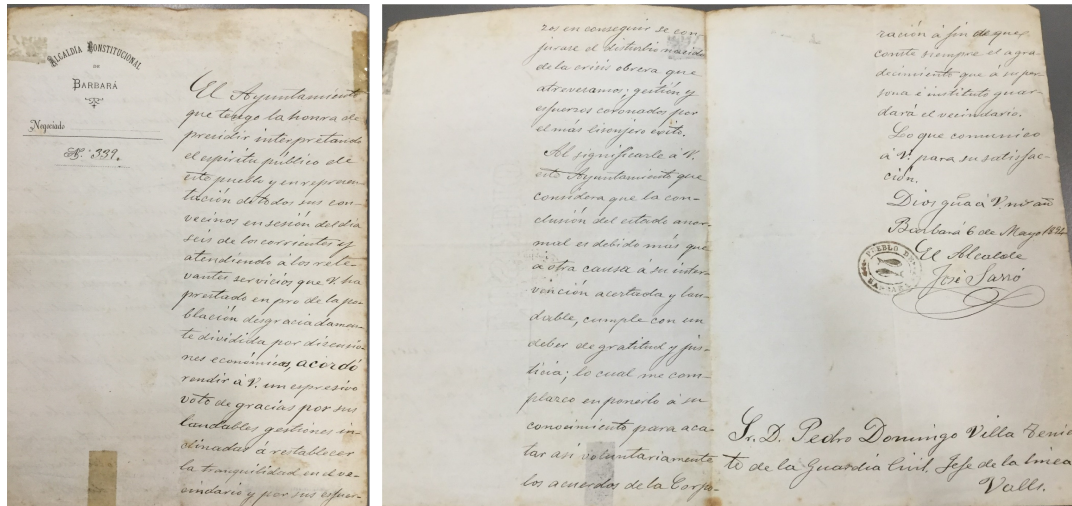 ALCALDIA CONSTITUCIONAL
DE
BARBARÁ
Negociado
N.º 339.
El Ayuntamiento
que tengo la honra de
presidir interpretando
el espíritu público de
este pueblo y en represen-
tación de todos sus con-
vecinos en sesión del dia
seis de los corrientes y
atendiendo á los rele-
vantes servicios que V. ha
prestado en pro de la po-
blación desgraciadamen-
te dividida por disensio-
nes económicas, acordó
rendir á V. un expresivo
voto de gracias por sus
laudables gestiones in-
clinadas á restablecer
la tranquilidad en el ve-
cindario y por sus esfuer-
zos en conseguir se con-
jurase el disturbio nacido
de la crisis obrera que
atravesamos; gestión y
esfuerzos coronados por
el más lisonjero éxito.
Al significarle á V.
este Ayuntamiento que
considera que la con-
clusión del estado anor-
mal es debido más que
á otra causa á su inter-
vención acertada y lau-
dable, cumple con un
deber de gratitud y jus-
ticia; lo cual me com-
plazco en ponerlo á su
conocimiento para aca-
tar así voluntariamente
los acuerdos de la Corpo-
ración á fin de que
conste siempre el agra-
decimiento que á su per-
sona é instituto guar-
dará el vecindario.
Lo que comunico
á V. para su satisfac-
ción.
Dios gue á V. ms. añs
Barbará 6 de Mayo
El Alcalde
José Sarró
PUEBLO DE
BARBARÁ
Sr. D. Pedro Domingo Villa Tenien
te de la Guardia Civil, Jefe de la linea
Valls.